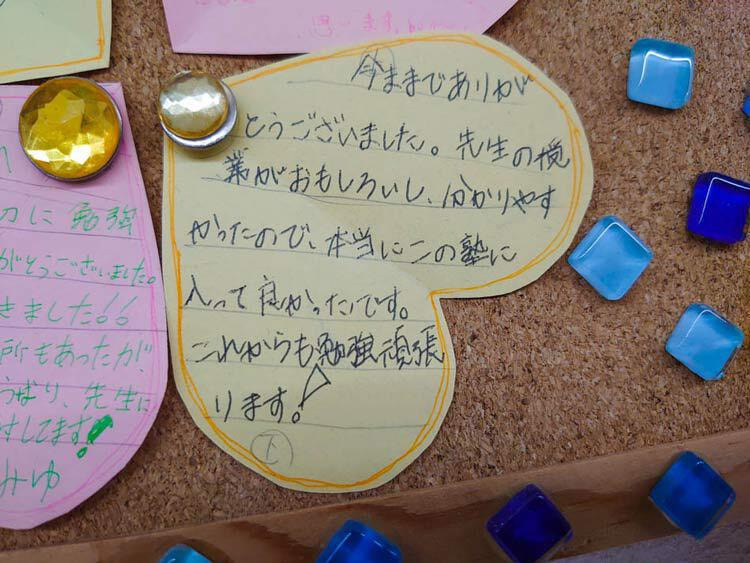 思います。
今までありが
とうございました。先生の授
業がおもしろいし、分かりやす
かったので、本当にこの塾に
入って良かったです。
これからも勉強頑張
ります。!
下
に 勉強
がとうございました。
きました!!
所もあったが、
ぱり、先生に
してます!
みゆ